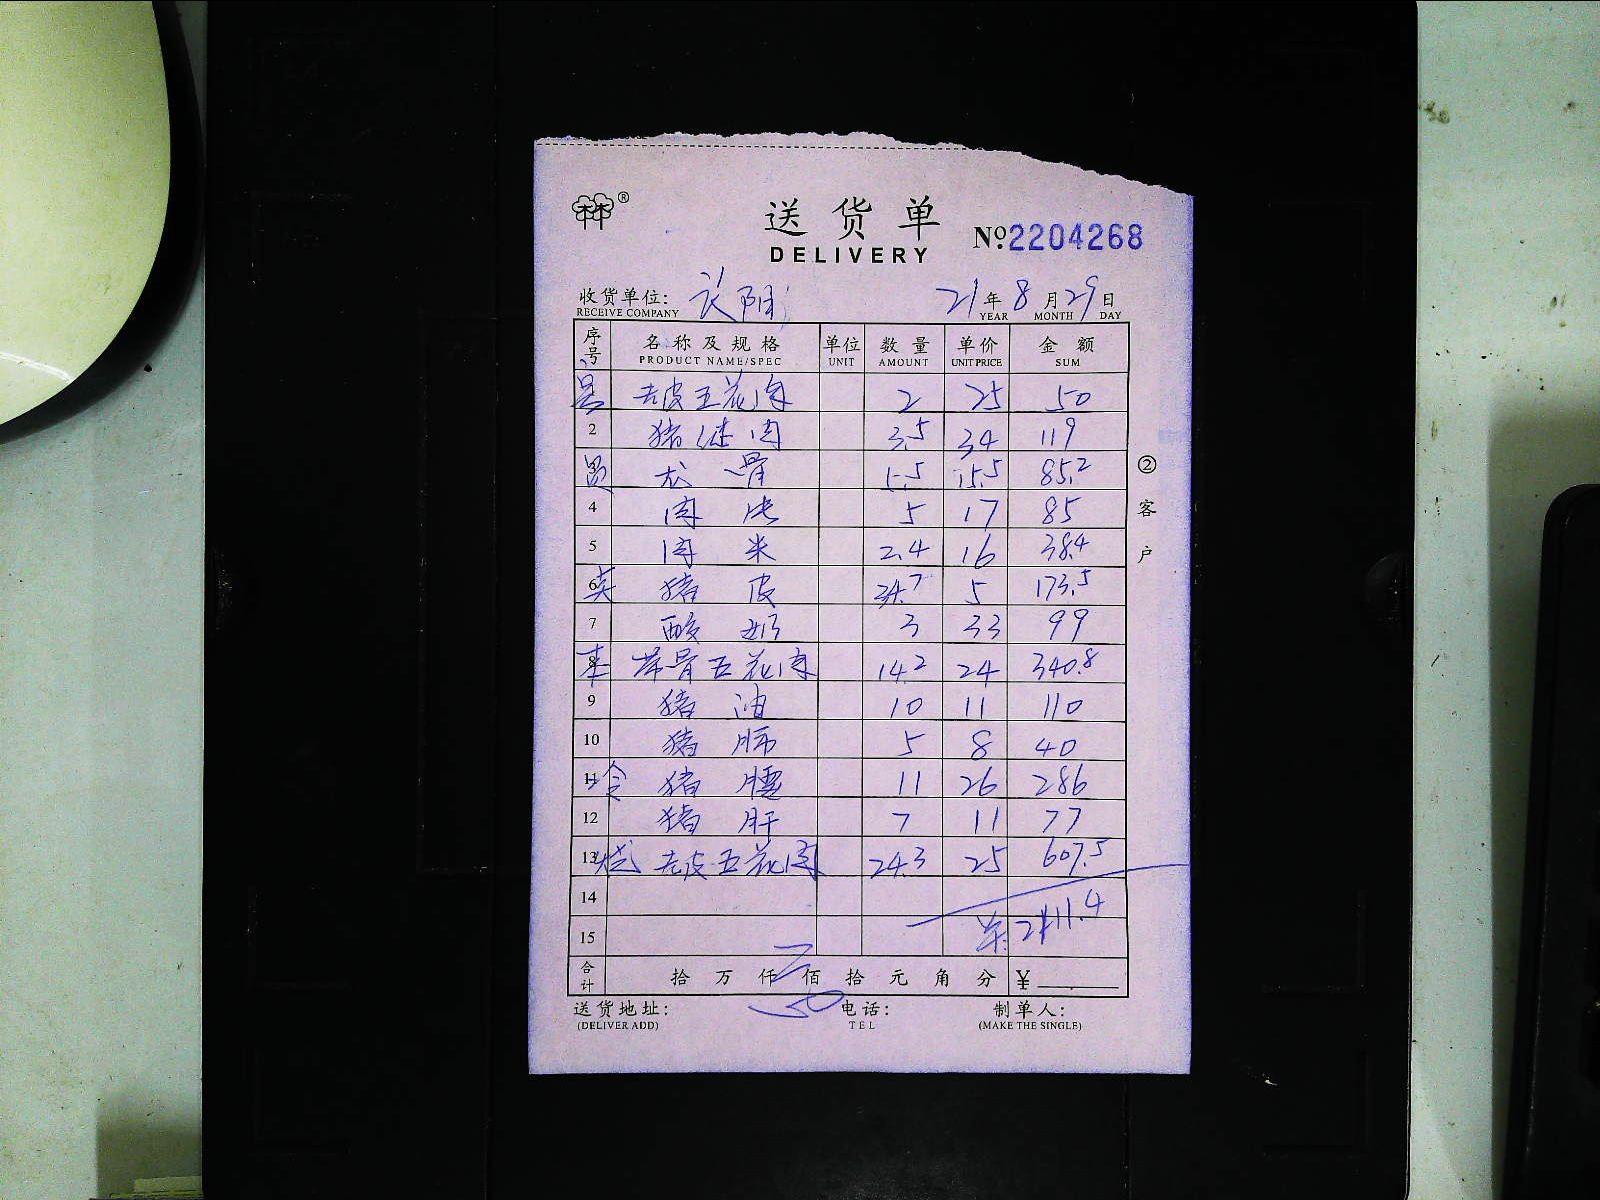 ®
送货单
DELIVERY
No.2204268
收货单位:
RECEIVE COMPANY
21年8月29日
YEAR MONTH DAY
序号 名称及规格 单位 数量 单价 金额
PRODUCT NAME/SPEC UNIT AMOUNT UNIT PRICE SUM
去皮五花肉 2 25 50
2 猪继肉 3.5 34 119
龙骨 5.5 15.5 85.2
4 肉 5 17 85
5 肉米 2.4 16 38.4
6 猪皮 34.7 5 173.5
7 酸奶 3 33 99
8 带骨五花肉 14.2 24 340.8
9 猪油 10 11 110
10 猪肺 5 8 40
11 猪腰 11 26 286
12 猪肝 7 11 77
13 烧 去皮五花肉 24.3 25 607.5
14
15 2111.4
合计 拾万仟佰拾元角分 ¥
送货地址: 电话: 制单人:
(DELIVER ADD) TEL (MAKE THE SINGLE)
②客户